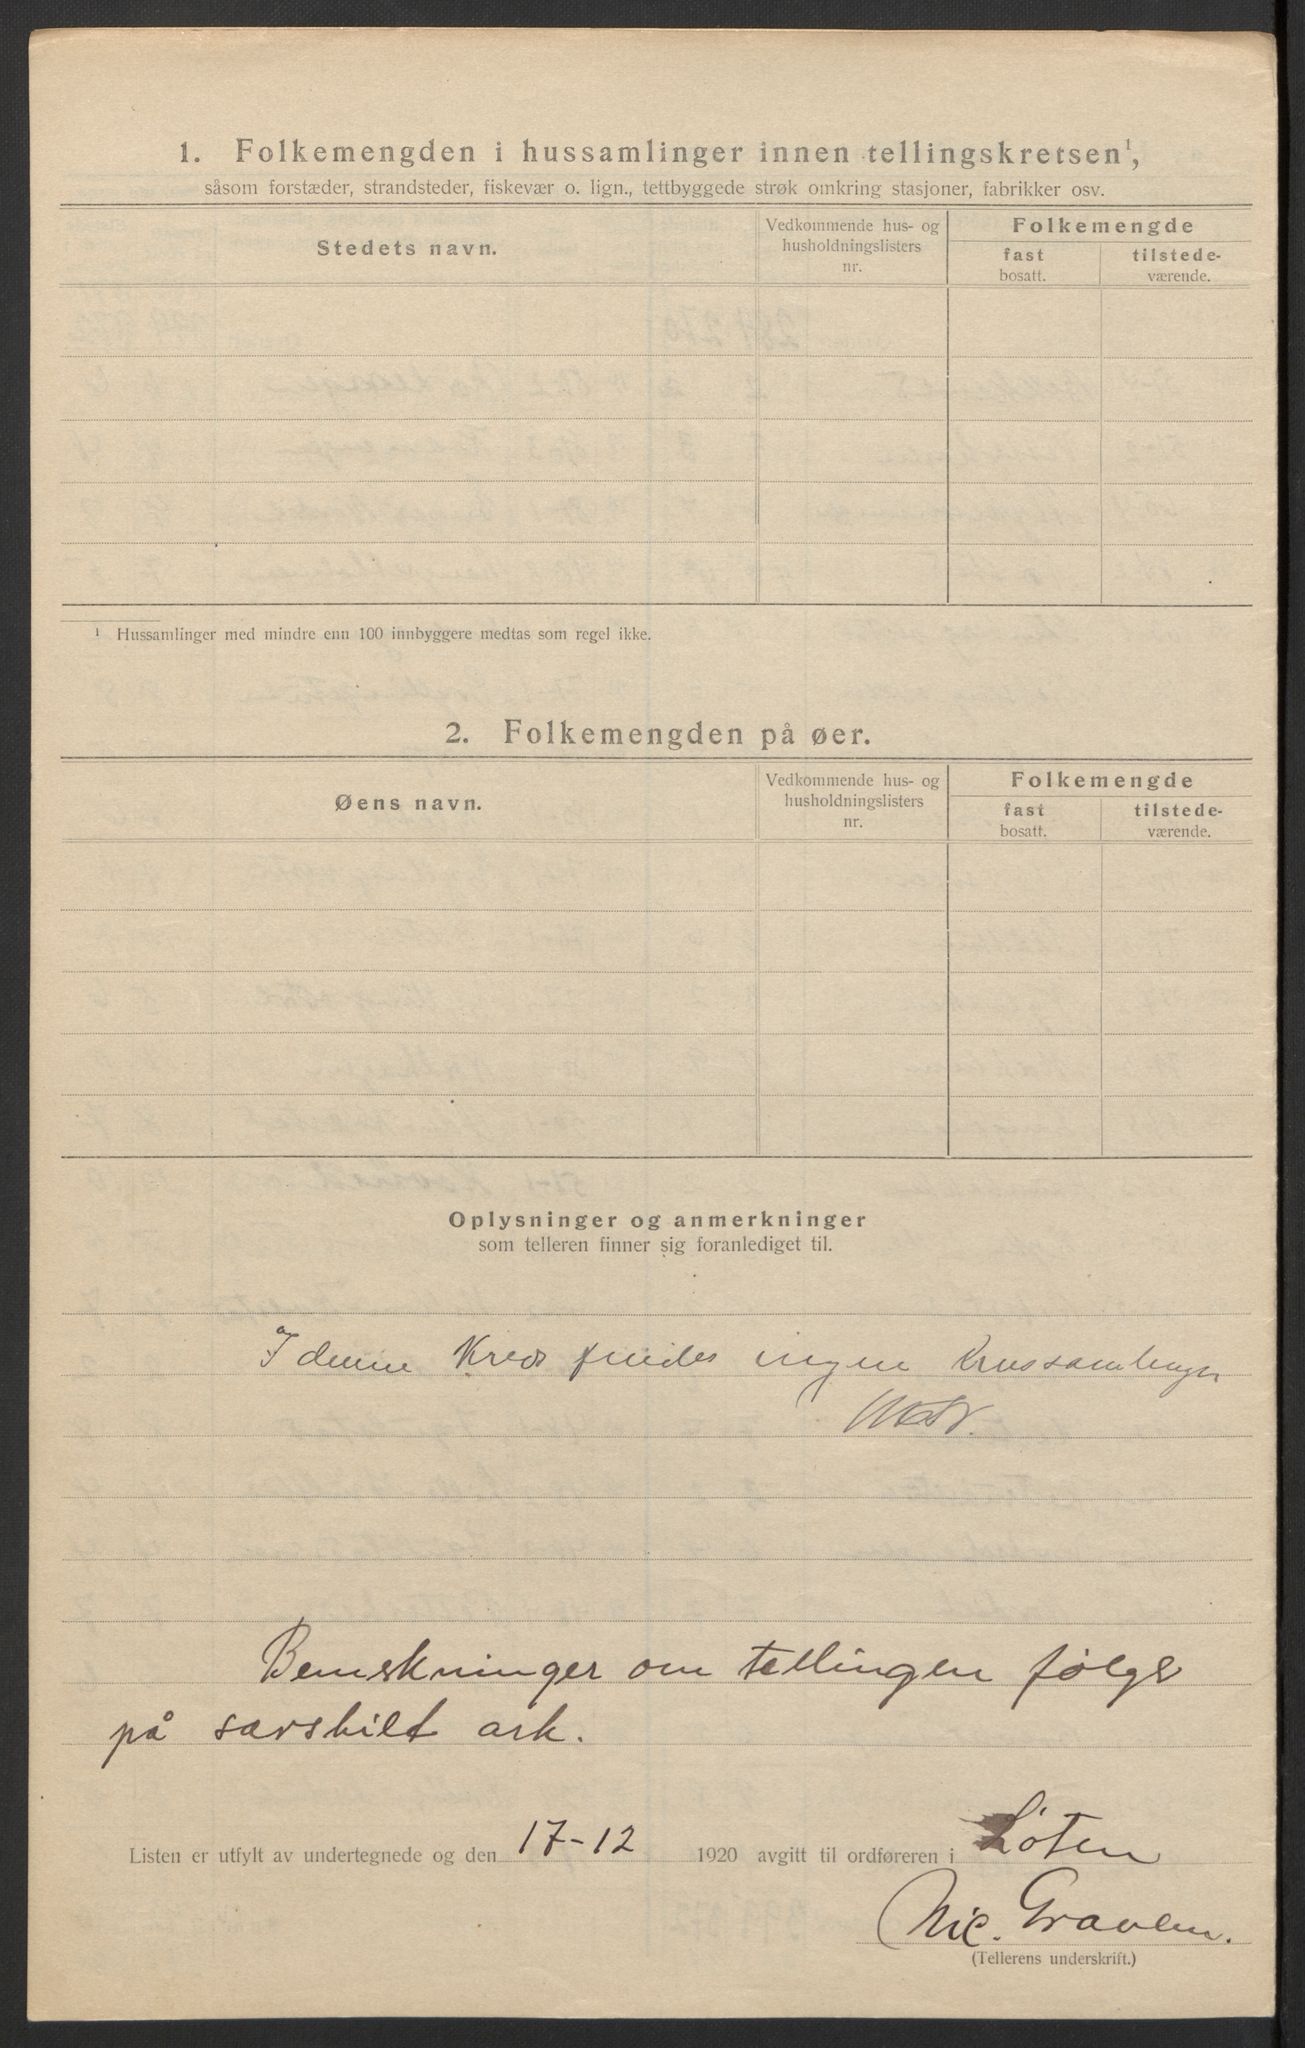 1. Folkemengden i hussamlinger innen tellingskretsen¹,
såsom forstæder, strandsteder, fiskevær o. lign., tettbyggede strøk omkring stasjoner, fabrikker osv.
Stedets navn.
Vedkommende hus- og
husholdningslisters
nr.
Folkemengde
fast
bosatt.
tilstede-
værende.
¹ Hussamlinger med mindre enn 100 innbyggere medtas som regel ikke.
2. Folkemengden på øer.
Øens navn.
Vedkommende hus- og
husholdningslisters
nr.
Folkemengde
fast
bosatt.
tilstede-
værende.
Oplysninger og anmerkninger
som telleren finner sig foranlediget til.
I denne Kreds findes ingen Hussamlinger
Bemerkninger om tellingen følge
på særskilt ark.
Listen er utfylt av undertegnede og den 17-12 1920 avgitt til ordføreren i Løten
Nic. Graven.
(Tellerens underskrift.)